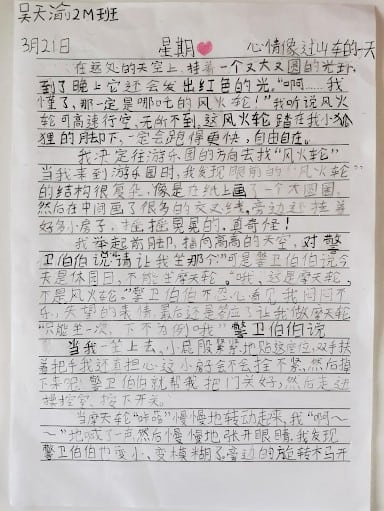 吴天渝2M班
3月21日 星期 心情像过山车的一天
在遥处的天空上,挂着一个又大又圆的光环,
到了晚上它还会发出红色的光。"啊……我
懂了,那一定是哪吒的风火轮!"我听说风火
轮可高速行空,无所不到。这风火轮踏在我小狐
狸的脚下,一定会跑得更快,自由自在。
我决定往游乐园的方向去找"风火轮"
当我来到游乐园时,我发现眼前的"风火轮"
的结构很复杂,像是在纸上画了一个大圆圈,
然后在中间画了很多的交叉线。旁边还挂着
好多小房子,摇摇晃晃的,真奇怪!
我举起前脚,指向高高的天空,对警
卫伯伯说"请让我坐那个"可是警卫伯伯说今
天是休园日,不能坐摩天轮。"哦,这是摩天轮,
不是风火轮。"警卫伯伯不忍心看见我闷闷不
乐,失望的表情,最后还是答应了让我做摩天轮
"只能坐一次,下不为例哦"警卫伯伯说
当我一坐上去,小屁股紧紧地贴这座位,双手扶
着把手我还直担心这小房子会不会拴不紧,然后掉
下来呢!警卫伯伯就帮我把门关好,然后走边
操控室,按下开关。
当摩天轮"咔嚓"慢慢地转动起来,我"啊~~
~"地喊了一声然后慢慢地张开眼睛,我发现
警卫伯伯也变小、变模糊了旁边的旋转木马开